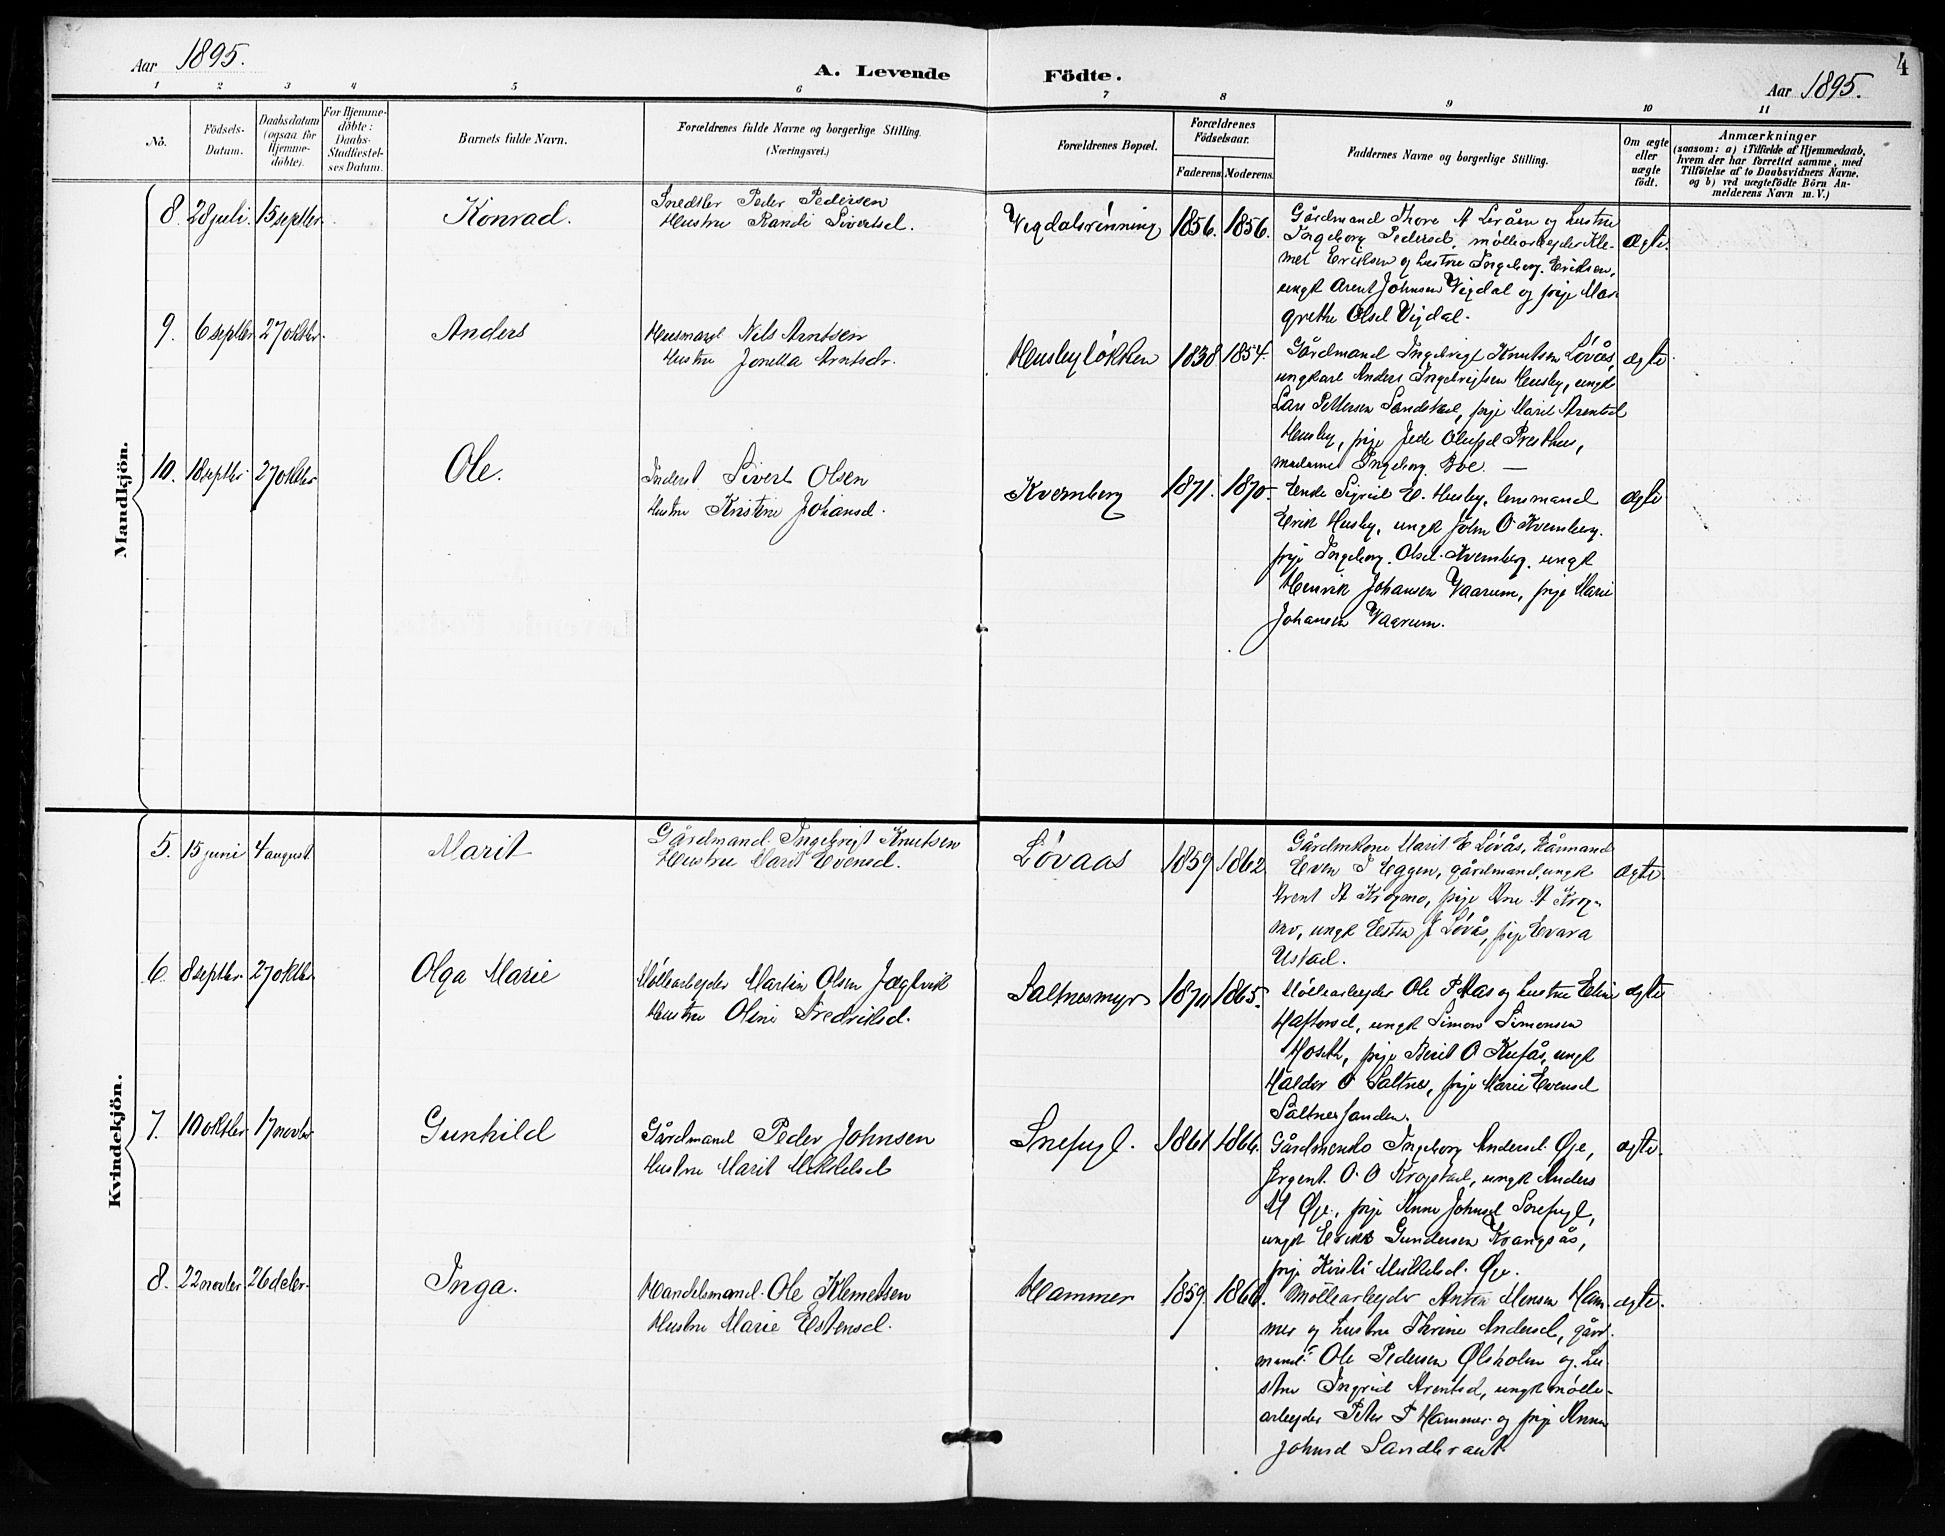 Aar 1895.
A. Levende Födte.
Aar 1895.
4
1 2 3 4 5 6 7 8 9 10 11
No.
Födsels-
Datum.
Daabsdatum
(ogsaa for
Hjemme-
döbte).
For Hjemme-
döbte:
Daabs-
Stadfæstel-
ses Datum.
Barnets fulde Navn.
Forældrenes fulde Navne og borgerlige Stilling.
(Næringsvei.)
Forældrenes Bopæl.
Forældrenes
Födselsaar.
Faderens. Moderens.
Faddernes Navne og borgerlige Stilling.
Om ægte
eller
uægte
födt.
Anmærkninger
(saasom: a) i Tilfælde af Hjemmedaab,
hvem der har forrettet samme, med
Tilföielse af to Daabsvidners Navne,
og b) ved uægtefödte Börn An-
melderens Navn m. V.)
Mandkjön.
8. 28 juli. 15 septbr. Konrad.
Snedker Peder Pedersen
Hustru Randi Sivertsd.
Vigdalsrönning 1856. 1856.
Gårdmand Thore A Leråen og hustru
Ingeborg Pedersd, møllearbejder Kle-
met Eriksen og hustru Ingeborg Eriksen,
ungk Arent Johnsen Vigdal og pige Mar
grethe Olsd Vigdal.
ægte.
9. 6 septbr 27 oktbr. Anders
Husmand Nils Arntsen
Hustru Jonella Arntsdr.
Husbyløkken 1838 1854.
Gårdmand Ingebrigt Knutsen Løvås,
ungkarl Anders Ingebrigtsen Husby, ungk
Lars Pettersen Sandstad, pige Marit Arentsd
Husby, pige Olufsd Presthus,
madame Ingeborg Boe. —
ægte
10. 18 septbr 27 oktbr Ole.
Inderst Sivert Olsen
Hustru Kristine Johansd.
Kvernberg 1871. 1870.
Enke Sigrid E. Husby, lensmand
Erik Husby, ungk John O Kvernberg.
pige Ingeborg Olsd. Kvernberg. ungk
Henrik Johansen Vaarum, pige Marie
Johansen Vaarum.
ægte
Kvindekjön.
5. 15 juni 4 august Marit
Gårdmand Ingebrigt Knutsen
Hustru Marit Evensd.
Løvaas 1859 1862
Gårdmkone Marit E Løvås, Kårmand
Even I Eggen, gårdmand, ungk
Arent A Krogmo, pige Ane A Krog-
mo, ungk Esten J Løvås, pige
Ustad.
ægte.
6. 8 septbr. 27 oktbr. Olga Marie
Møllearbejder Martin Olsen Jægtvik
Hustru Oline Fredriksd.
Saltnesmyr 1870 1865.
Møllearbejder Ole P Mas og hustru Eline
Haftorsd, ungk Simon Simonsen
Moseth, pige Berit O Kufås, ungk
Haldor O Saltnes, pige Marie Evensd
Saltnessanden.
ægte
7. 10 oktbr 17 novbr Gunhild
Gårdmand Peder Johnsen
Hustru Marit Mikkelsd
Snefugl. 1861 1866.
Ingeborg Andersd. Øje,
Sergent. O. O Krogstad, ungk Anders
M Øje., pige Anne Johnsd Snefugl,
ungk Erik Gundersen Krangsås,
pige Kirsti Mikkelsd. Øje.
ægte.
8. 22 novbr 26 decbr. Inga.
Handelsmand. Ole Klemetsen
Hustru Marie Estensd.
Hammer 1859. 1866.
Møllearbejder Anton Monsen Ham-
mer og hustru Thrine Andersd, gård-
mand Ole Pedersen Ølsholm og hu-
stru Ingrid Arentsd, ungk mølle-
arbejder Peter P Hammer og pige Anne
Johnsd Sandbraut
ægte.